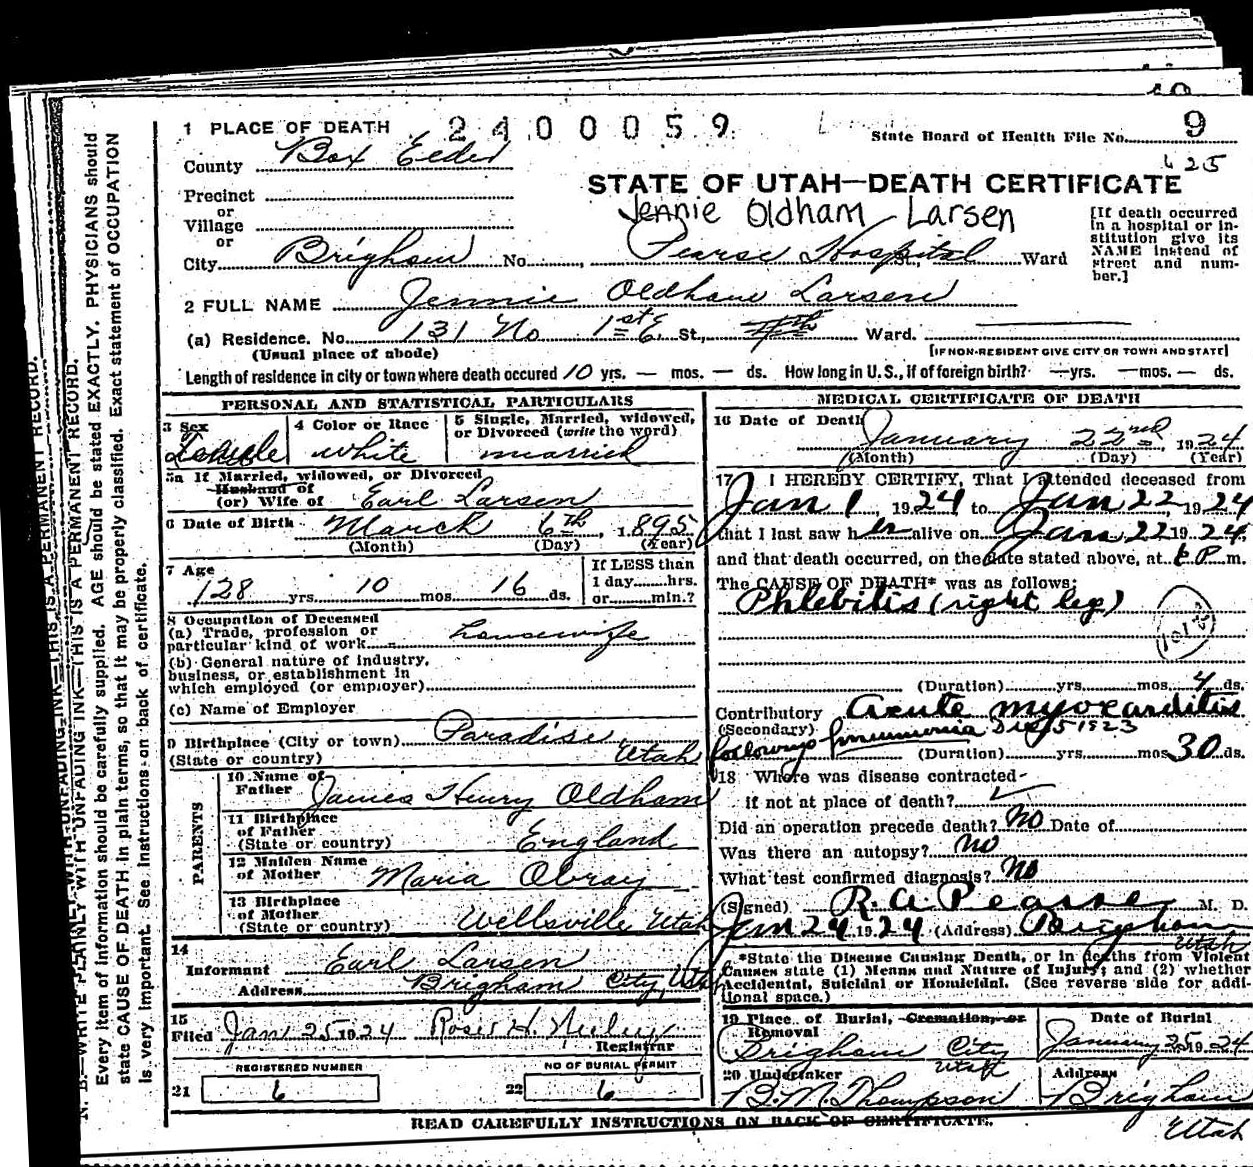 1 PLACE OF DEATH 2400059
State Board of Health File No. 9
County Box Elder
625
Precinct
or
Village
or
City Brigham No. , Pearse Hospital St., Ward
STATE OF UTAH—DEATH CERTIFICATE
Jennie Oldham Larsen
[If death occurred
in a hospital or in-
stitution give its
NAME instead of
street and num-
ber.]
2 FULL NAME Jennie Oldham Larsen
(a) Residence. No. 131 No 1st E. St., 4th Ward.
(Usual place of abode)
[IF NON-RESIDENT GIVE CITY OR TOWN AND STATE]
Length of residence in city or town where death occured 10 yrs. — mos. — ds. How long in U.S., if of foreign birth? — yrs. — mos. — ds.
PERSONAL AND STATISTICAL PARTICULARS
3 Sex
Female
4 Color or Race
white
5 Single, Married, widowed,
or Divorced (write the word)
married
5a If Married, widowed, or Divorced
Husband of
(or) Wife of Earl Larsen
6 Date of Birth March 6th, 1895
(Month) (Day) (Year)
7 Age
28 yrs. 10 mos. 16 ds.
If LESS than
1 day......hrs.
or......min.?
8 Occupation of Deceased
(a) Trade, profession or
particular kind of work housewife
(b) General nature of industry,
business, or establishment in
which employed (or employer)
(c) Name of Employer
9 Birthplace (City or town) Paradise
(State or country) Utah
PARENTS
10 Name of
Father James Henry Oldham
11 Birthplace
of Father
(State or country) England
12 Maiden Name
of Mother Maria Obray
13 Birthplace
of Mother
(State or country) Wellsville Utah
14
Informant Earl Larsen
Address Brigham City, Utah
15
Filed Jan 25 1924
Registrar
REGISTERED NUMBER
21 6
NO OF BURIAL PERMIT
22 6
MEDICAL CERTIFICATE OF DEATH
16 Date of Death January 22nd, 1924
(Month) (Day) (Year)
17 I HEREBY CERTIFY, That I attended deceased from
Jan 1, 1924 to Jan 22, 1924
that I last saw her alive on Jan 22 1924
and that death occurred, on the date stated above, at P.m.
The CAUSE OF DEATH* was as follows:
Phlebitis (right leg)
(Duration) yrs. mos. 4 ds.
Contributory Acute myocarditis
(Secondary) following pneumonia Dec 15 1923
(Duration) yrs. mos. 30 ds.
18 Where was disease contracted
if not at place of death?
Did an operation precede death? No Date of
Was there an autopsy? No
What test confirmed diagnosis? No
(Signed) R. A. Pearse M. D.
Jan 24 1924 (Address) Brigham
Utah
*State the Disease Causing Death, or in deaths from Violent
Causes state (1) Means and Nature of Injury; and (2) whether
Accidental, Suicidal or Homicidal. (See reverse side for addi-
tional space.)
19 Place of Burial, Cremation, or
Removal
Brigham City
Utah
Date of Burial
January 25 1924
20 Undertaker
B. M. Thompson
Address
Brigham
Utah
READ CAREFULLY INSTRUCTIONS ON BACK OF CERTIFICATE.
N. B.—WRITE PLAINLY WITH UNFADING INK—THIS IS A PERMANENT RECORD.
Every item of information should be carefully supplied. AGE should be stated EXACTLY. PHYSICIANS should
state CAUSE OF DEATH in plain terms, so that it may be properly classified. Exact statement of OCCUPATION
is very important. See instructions on back of certificate.